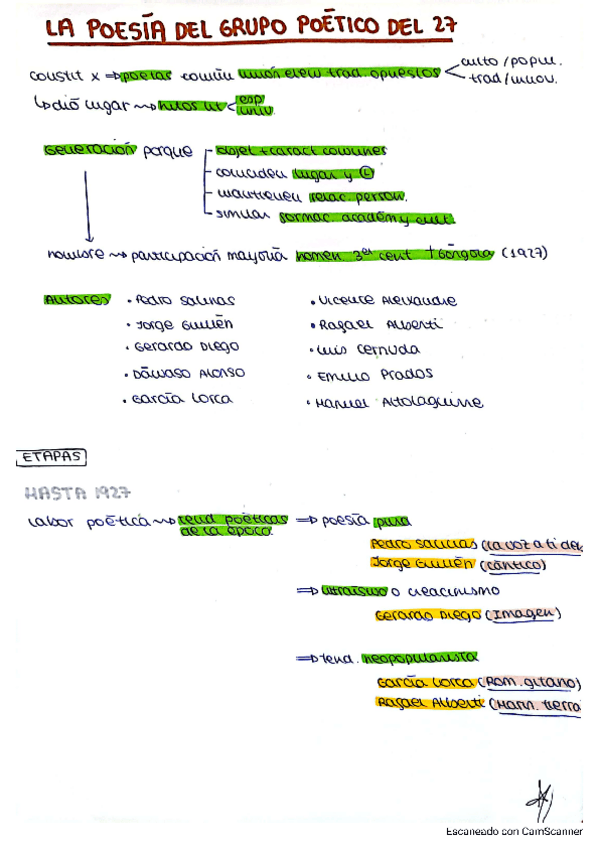 LA POESÍA DEL GRUPO POÉTICO DEL 27
constit x ⇒ poetas común unión elem trad. opuestos < culto / popul.
trad / innov.
↳ dió lugar ~> hitos lit < esp
univ
Generación porque - objet + caract comunes
- coinciden lugar y (t)
- mantienen relac. person.
- similar formac. académ y cult.
nombre ~> participación mayoría homen 3er cent † Góngora (1927)
Autores • Pedro Salinas • Vicente Aleixandre
• Jorge Guillén • Rafael Alberti
• Gerardo Diego • Luis Cernuda
• Dámaso Alonso • Emilio Prados
• García Lorca • Manuel Altolaguirre
ETAPAS
HASTA 1927
Labor poética ~> tend poéticas ⇒ poesía pura
de la época.
Pedro Salinas (La voz a ti deb
Jorge Guillén (Cántico)
⇒ ultraísmo o creacinismo
Gerardo Diego (Imagen)
⇒ tend. neopopularista
García Lorca (Rom. gitano)
Rafael Alberti (Marin. tierra
Escaneado con CamScanner